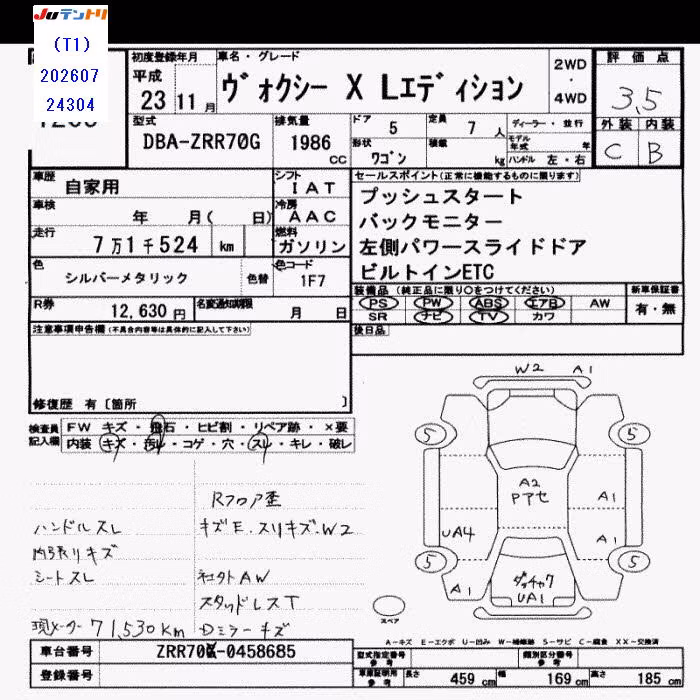 JUテントリ
(T1)
202607
24304
初度登録年月
平成
23 11月
車名・グレード
ヴォクシー X Lエディション
2WD
・
4WD
評価点
3.5
外装 内装
C B
型式
DBA-ZRR70G
排気量
1986
CC
ドア 5
定員 7人
形状 ワゴン
積載 kg
ディーラー・並行
モデル年式 年
ハンドル 左・右
車歴 自家用
シフト IAT
車検 年 月( 日)
冷房 AAC
走行 7万1千524 km
燃料 ガソリン
色 シルバーメタリック 色替
色コード 1F7
R券 12,630円
名変通知期限 月 日
セールスポイント(正常に機能するものに限ります)
プッシュスタート
バックモニター
左側パワースライドドア
ビルトインETC
装備品(純正品に限り○をつけてください)
PS PW ABS エアB AW
SR ナビ TV カワ
新車保証書
有・無
後日品
注意事項申告欄(不具合内容等は具体的に記入して下さい)
修復歴 有〔箇所 〕
検査員記入欄
FW キズ・飛石・ヒビ割・リペア跡・×要
内装 キズ・汚れ・コゲ・穴・スレ・キレ・破レ
Rフロア歪
ハンドルスレ
キズE.スリキズ.W2
内張りキズ
シートスレ
社外AW
スタッドレスT
現メーター71,530km
Dミラーキズ
W2 A1
5 5
A2
Pアセ
A1
UA4
A1
5 5
A1
ダッチャク
UA1
A1
スペア
A-キズ E-エクボ U-凹み W-補修跡 S-サビ C-腐食 XX-交換済
車台番号 ZRR70G-0458685
登録番号
型式指定番号 参考
類別区分番号 参考
車庫証明用 参考
長さ 459 cm
幅 169 cm
高さ 185 cm